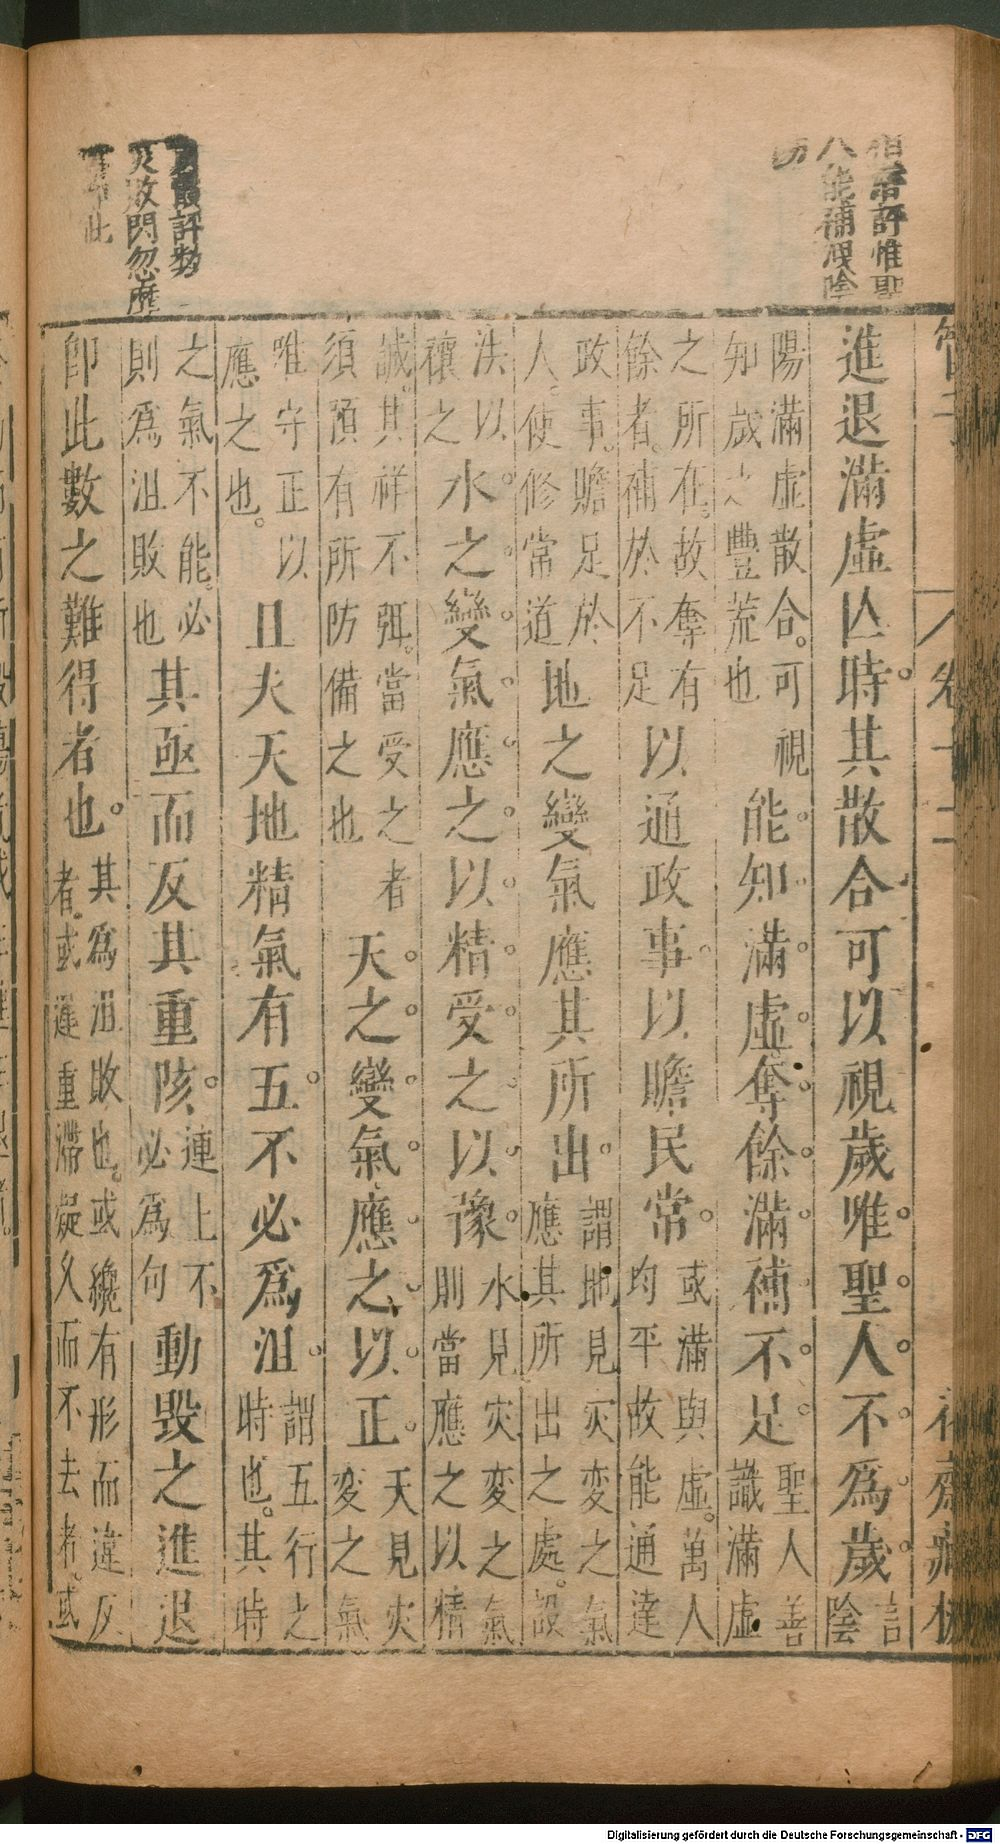 評惟聖
能補
評勢
敗閃忽應
此
管子
卷十二
進退滿虛亾時其散合可以視歲唯聖人不爲歲言陰
陽滿虛散合可視知歲之豐荒也能知滿虛奪餘滿補不足聖人善識滿虛
之所在故奪有餘者補於不足以通政事以贍民常或滿與虛萬人均平故能通達
政事贍足於人使修常道地之變氣應其所出謂地見灾変之氣應其所出之處設
法以禳之水之變氣應之以精受之以豫水見灾変之氣則當應之以精
誠其祥不弭當受之者須預有所防備之也天之變氣應之以正天見灾変之氣
唯守正以應之也且夫天地精氣有五不必爲沮謂五行之時也其時
之氣不能必則爲沮敗也其亟而反其重陔連上不必爲句動毀之進退
卽此數之難得者也其爲沮敗也或纔有形而違反者或遲重滯凝久而不去者或
Digitalisierung gefördert durch die Deutsche Forschungsgemeinschaft - DFG